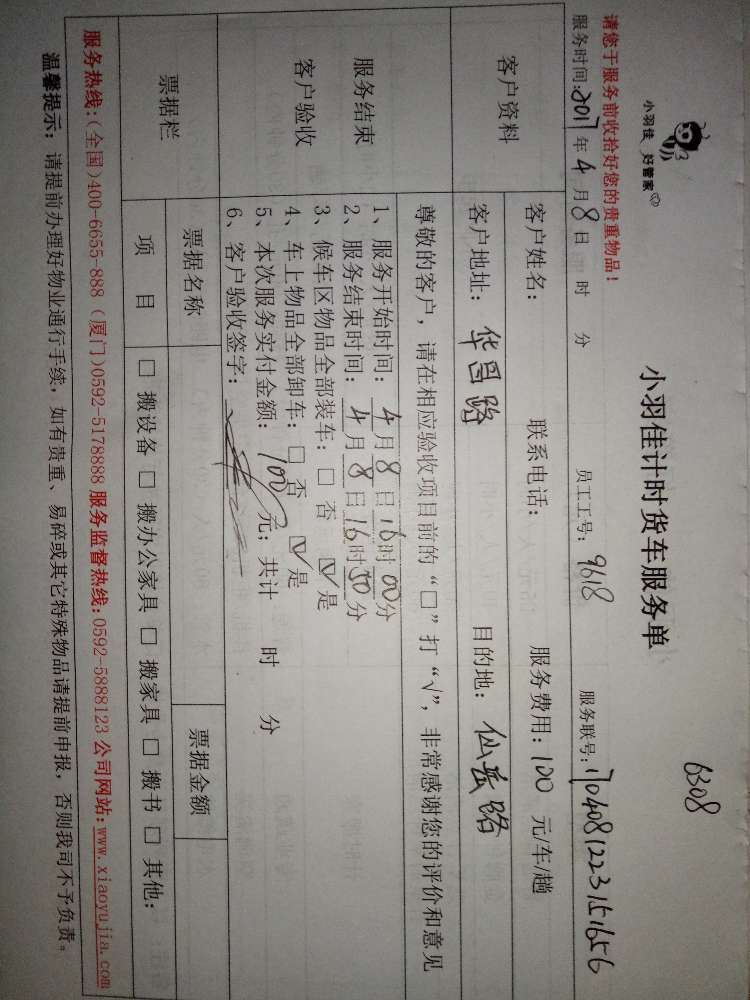 6308
小羽佳 好管家
小羽佳计时货车服务单
请您于服务前收拾好您的贵重物品！
服务时间：2017年4月8日 时 分 员工工号：9618 服务联号：1704081223151656
客户资料
客户姓名： 联系电话： 服务费用：100 元/车/趟
客户地址：华昌路 目的地：仙岳路
服务结束
客户验收
尊敬的客户，请在相应验收项目前的“□”打“√”，非常感谢您的评价和意见
1、服务开始时间：4月8日16时00分
2、服务结束时间：4月8日16时50分
3、候车区物品全部装车：□ 否 ☑是
4、车上物品全部卸车：□ 否 ☑是
5、本次服务实付金额：100元；共计 时 分
6、客户验收签字：
票据栏
票据名称 票据金额
项 目 □ 搬设备 □ 搬办公家具 □ 搬家具 □ 搬书 □ 其他：
服务热线：(全国)400-6655-888 (厦门)0592-5178888 服务监督热线：0592-5888123 公司网站：www.xiaoyujia.com
温馨提示：请提前办理好物业通行手续，如有贵重、易碎或其它特殊物品请提前申报，否则我司不予负责。